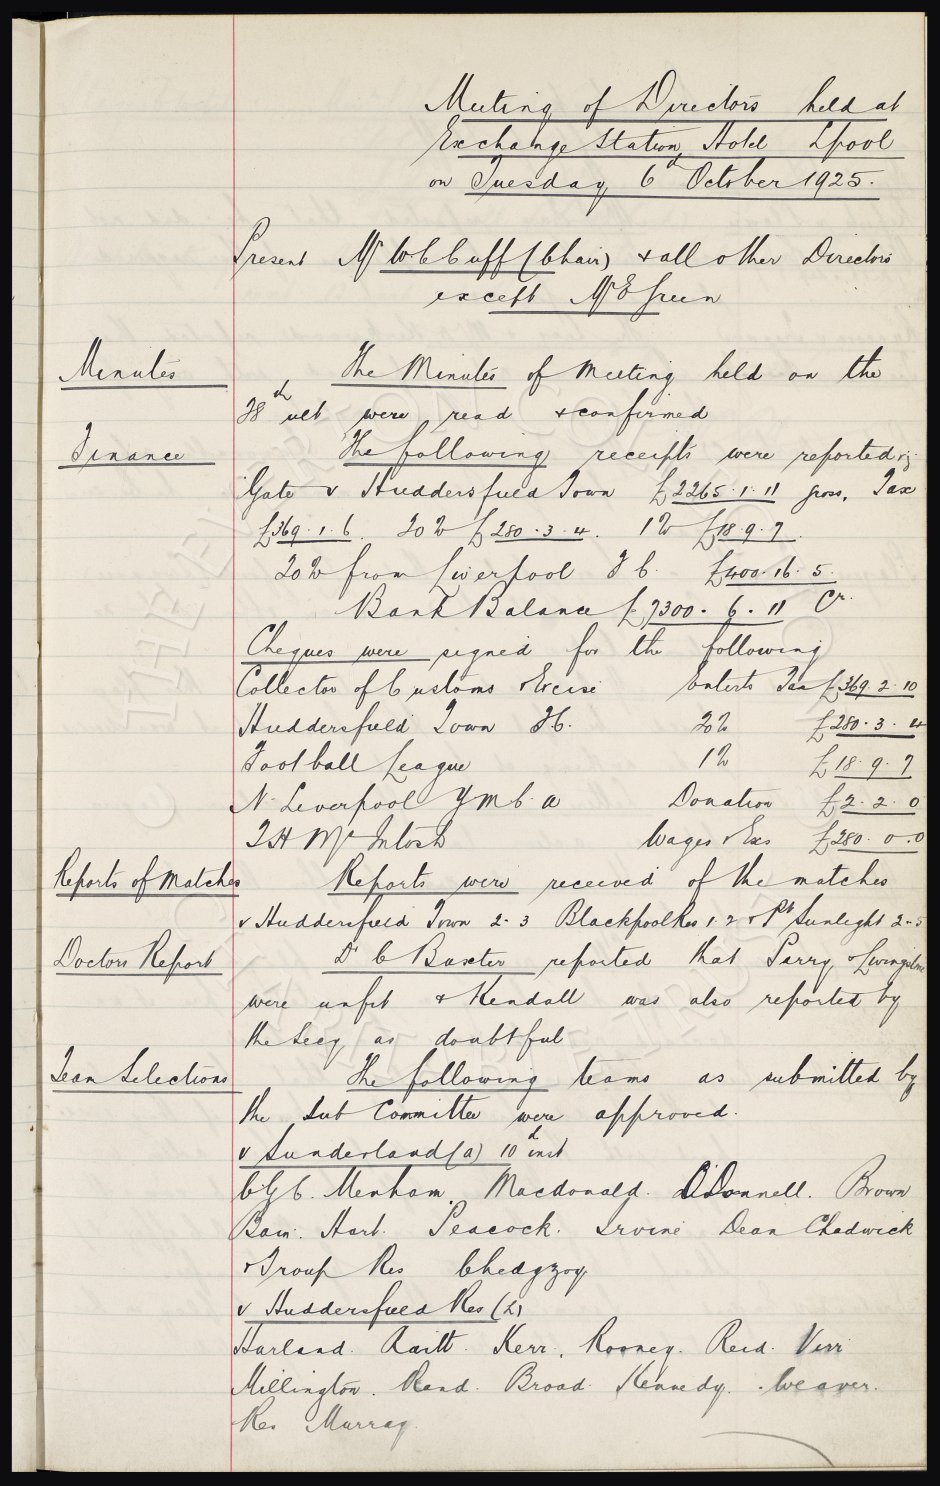 Meeting of Directors held at
Exchange Station Hotel Lpool
on Tuesday 6th October 1925.
Present Mr W C Cuff (Chair) & all other Directors
except Mr E Green
Minutes The Minutes of Meeting held on the
28th ult were read & confirmed
Finance The following receipts were reported viz
Gate v Huddersfield Town £2265.1.11 gross, Tax
£369.1.6. 20% £280.3.4. 1% £18.9.7.
20% from Liverpool F C. £400.16.5.
Bank Balance £7300.6.11 Cr.
Cheques were signed for the following
Collector of Customs & Excise Enterts Tax £369.2.10
Huddersfield Town FC. 20% £280.3.4
Football League 1% £18.9.7
N. Liverpool Y M C. A Donation £2.2.0
T H McIntosh Wages & Exs £280.0.0
Reports of Matches Reports were received of the matches
v Huddersfield Town 2-3 Blackpool Res 1.2 & Pt Sunlight 2-5
Doctors Report Dr C Baxter reported that Parry & Livingstone
were unfit & Kendall was also reported by
the Secy as doubtful
Team Selections The following teams as submitted by
the Sub Committee were approved.
v Sunderland (a) 10th inst
C.G.C. Menham. Macdonald. O'Donnell. Brown
Bain. Hart. Peacock. Irvine Dean Chadwick
& Troup Res Chedgzoy.
v Huddersfield Res (2)
Harland. Raitt. Kerr. Rooney. Reid. Virr
Millington. Rand. Broad. Kennedy. Weaver.
Res Murray.